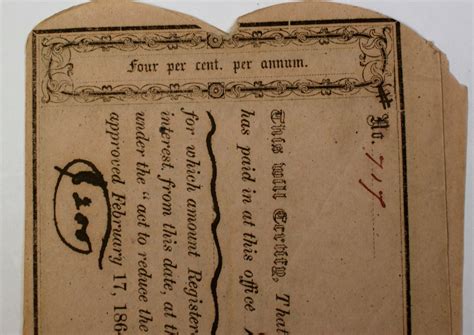 Four per cent. per annum.
No. 717
This will Certify, That
has paid in at this office
for which amount Register
interest, from this date, at th
under the "act to reduce the
approved February 17, 186
200